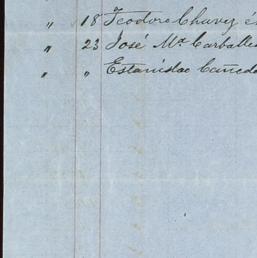 " 18 Teodoro Chavez é
" 23 José Ma Carballe
" " Estanislao Cañedo